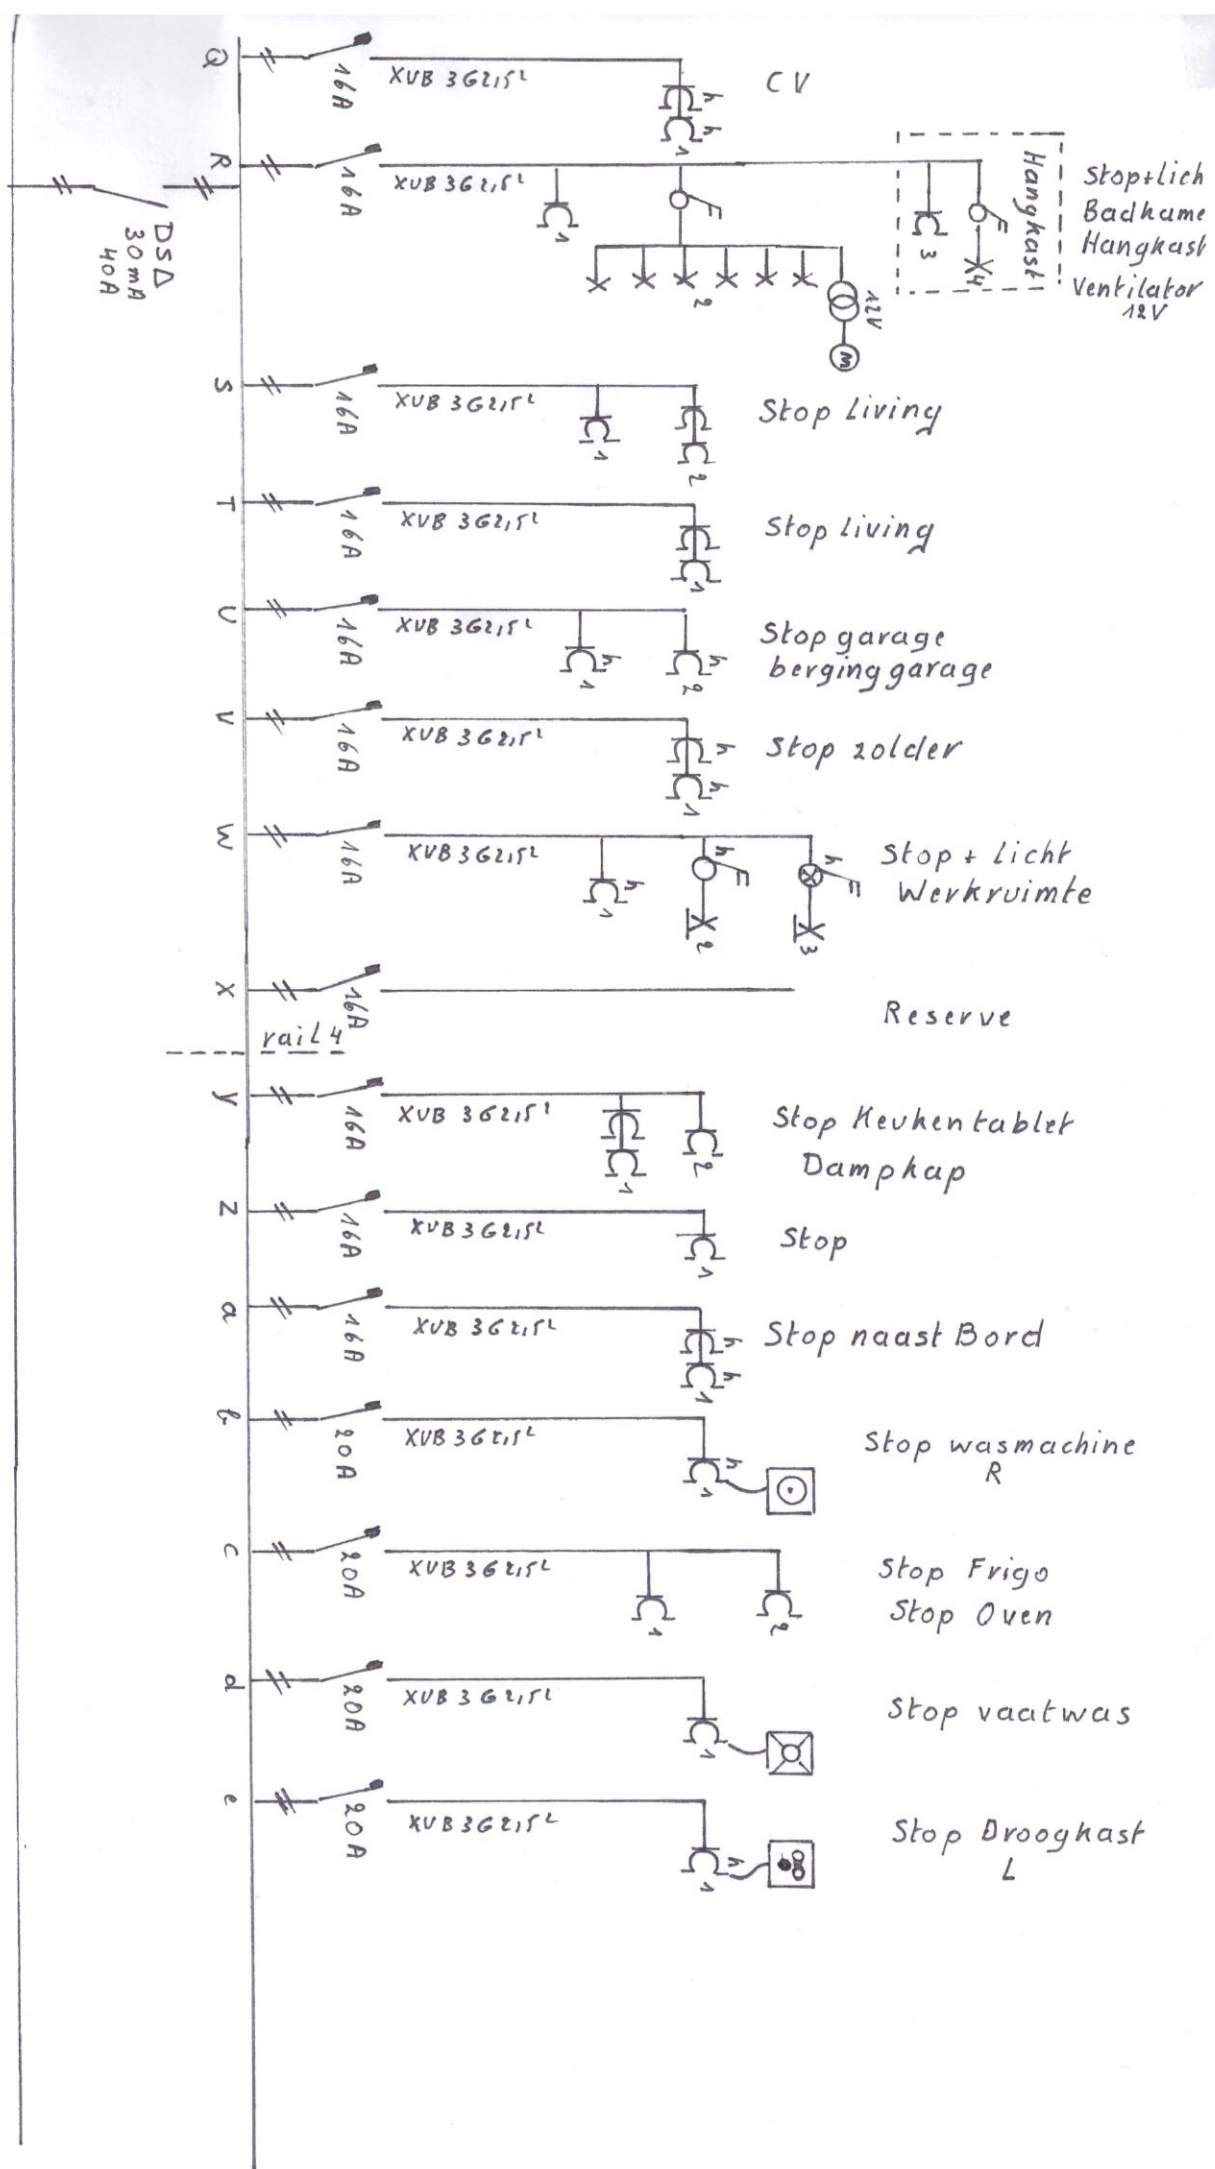 Q
16A
XVB 3G2,5²
h
h
1
CV
R
16A
XVB 3G2,5²
1
2
12V
M
3
4
Hangkast
Stop+lich
Badkame
Hangkast
Ventilator
12V
DSΔ
30mA
40A
S
16A
XVB 3G2,5²
1
2
Stop Living
T
16A
XVB 3G2,5²
1
Stop living
U
16A
XVB 3G2,5²
h
1
h
2
Stop garage
berging garage
V
16A
XVB 3G2,5²
h
h
1
Stop zolder
W
16A
XVB 3G2,5²
h
1
h
2
h
3
Stop + Licht
Werkruimte
X
16A
Reserve
rail 4
y
16A
XVB 3G2,5²
1
2
Stop Keukentablet
Dampkap
Z
16A
XVB 3G2,5²
1
Stop
a
16A
XVB 3G2,5²
h
h
1
Stop naast Bord
b
20A
XVB 3G2,5²
h
1
Stop wasmachine
R
c
20A
XVB 3G2,5²
1
2
Stop Frigo
Stop Oven
d
20A
XVB 3G2,5²
1
Stop vaatwas
e
20A
XVB 3G2,5²
h
1
Stop Droogkast
L